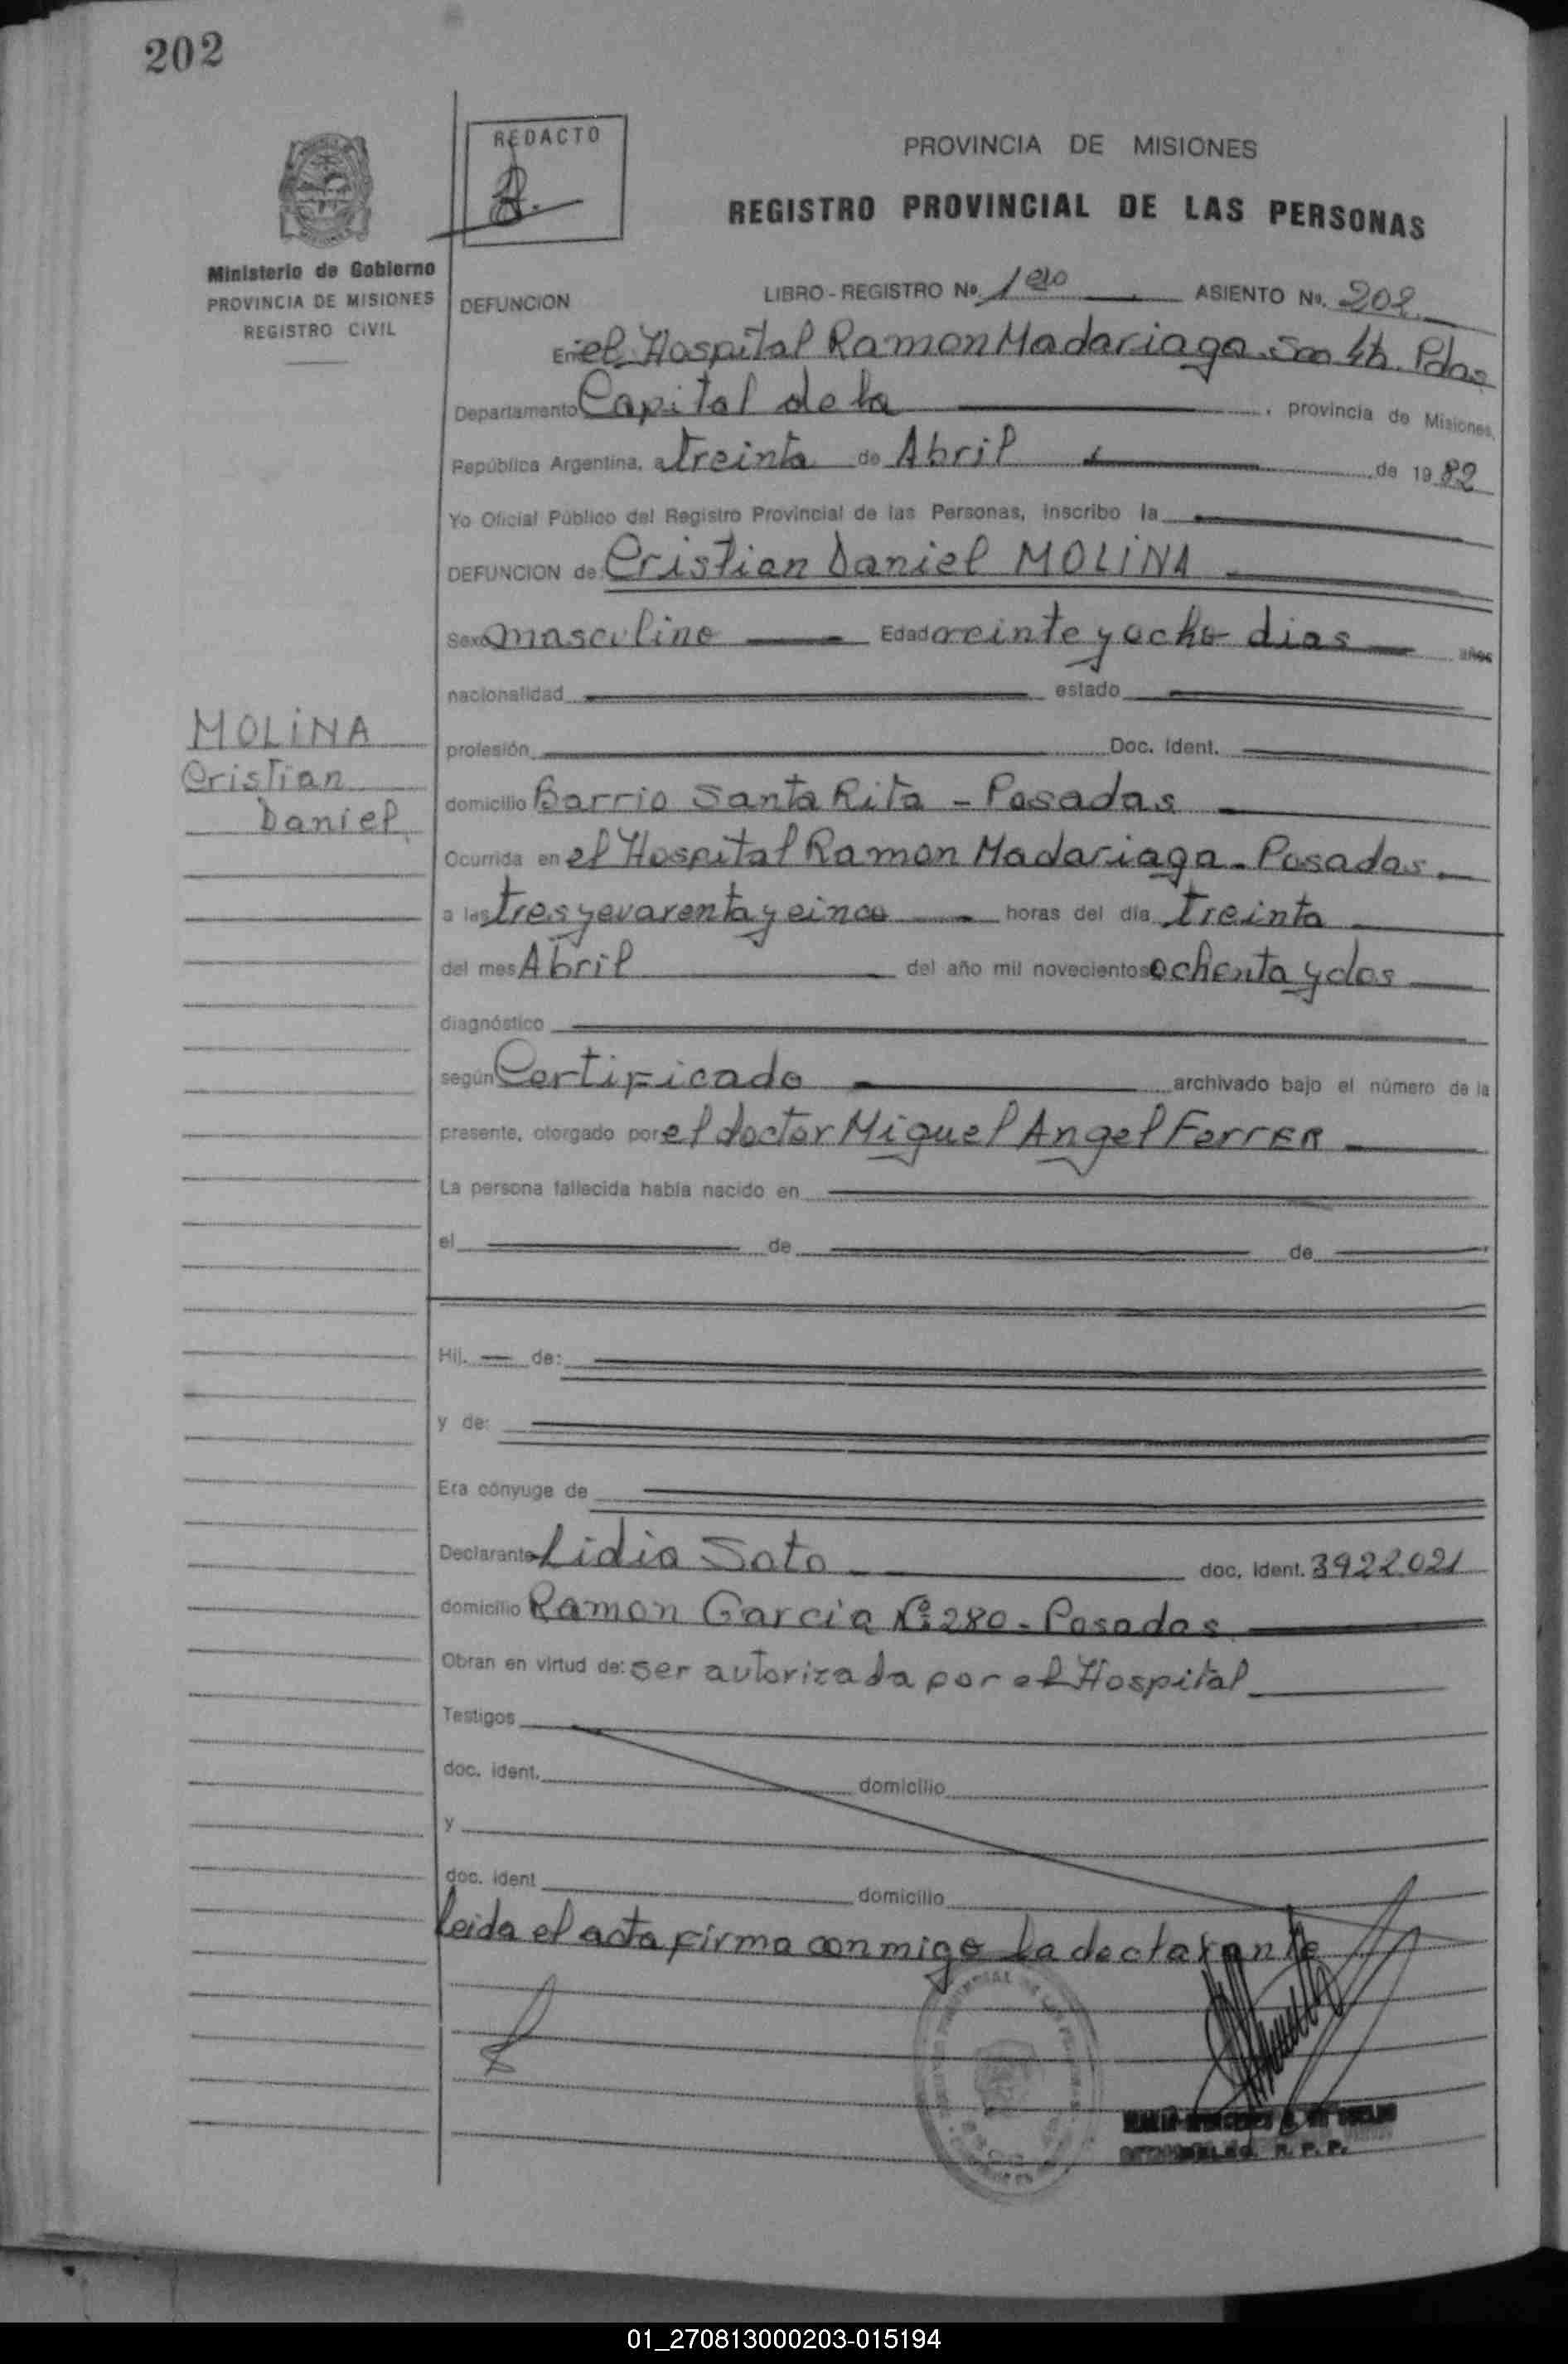 202
REDACTO
PROVINCIA DE MISIONES
REGISTRO PROVINCIAL DE LAS PERSONAS
Ministerio de Gobierno
PROVINCIA DE MISIONES
REGISTRO CIVIL
DEFUNCION LIBRO - REGISTRO Nº. 1ero ASIENTO Nº. 202
En el Hospital Ramon Madariaga. Pdas
Departamento Capital de la , provincia de Misiones,
República Argentina, a treinta de Abril de 1982
Yo Oficial Público del Registro Provincial de las Personas, inscribo la
DEFUNCION de Cristian Daniel MOLINA
Sexo masculino Edad veinte y ocho dias años
nacionalidad estado
MOLINA
Cristian
Daniel
profesión Doc. Ident.
domicilio Barrio Santa Rita - Posadas
Ocurrida en el Hospital Ramon Madariaga - Posadas
a las tres y cuarenta y cinco horas del día treinta
del mes Abril del año mil novecientos ochenta y dos
diagnóstico
según Certificado archivado bajo el número de la
presente, otorgado por el doctor Miguel Angel FerrER
La persona fallecida había nacido en
el de de
Hij. de:
y de:
Era cónyuge de
Declarante Lidia Soto doc. Ident. 3922021
domicilio Ramon Garcia Nº 280 - Posadas
Obran en virtud de: ser autorizada por el Hospital
Testigos
doc. ident. domicilio
y
doc. ident domicilio
leida el acta firma conmigo la declarante
R. P. P.
01_270813000203-015194